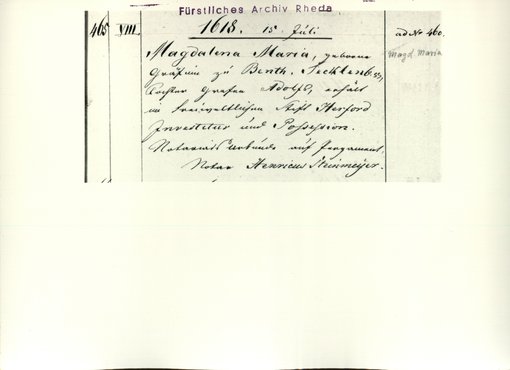 Fürstliches Archiv Rheda
465 VIII. 1618. 15 Juli ad No 460.
Magdalena Maria, geborne Magd. Maria
Gräfin zu Benth. Tecklenb.
Tochter Grafen Adolfs, erhält
im freiweltlichen Stift Herford
Investitur und Possession.
Notariats Urkunde auf Pergament.
Notar Henricus Steinmeijer.